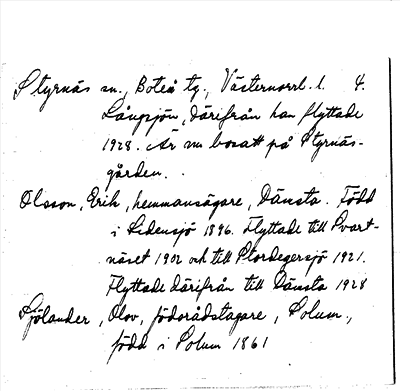 Styrnäs sn., Boteå tg., Västernorrl. l. 4.
Långsjön, därifrån han flyttade
1928. Är nu bosatt på Styrnäs-
gården.
Olsson, Erik, hemmansägare, Dänsta. Född
i Sidensjö 1896. Flyttade till Svart-
näset 1902 och till Stordegersjö 1921.
Flyttade därifrån till Dänsta 1928
Sjölander, Olov, födorådstagare, Solum.,
född i Solum 1861